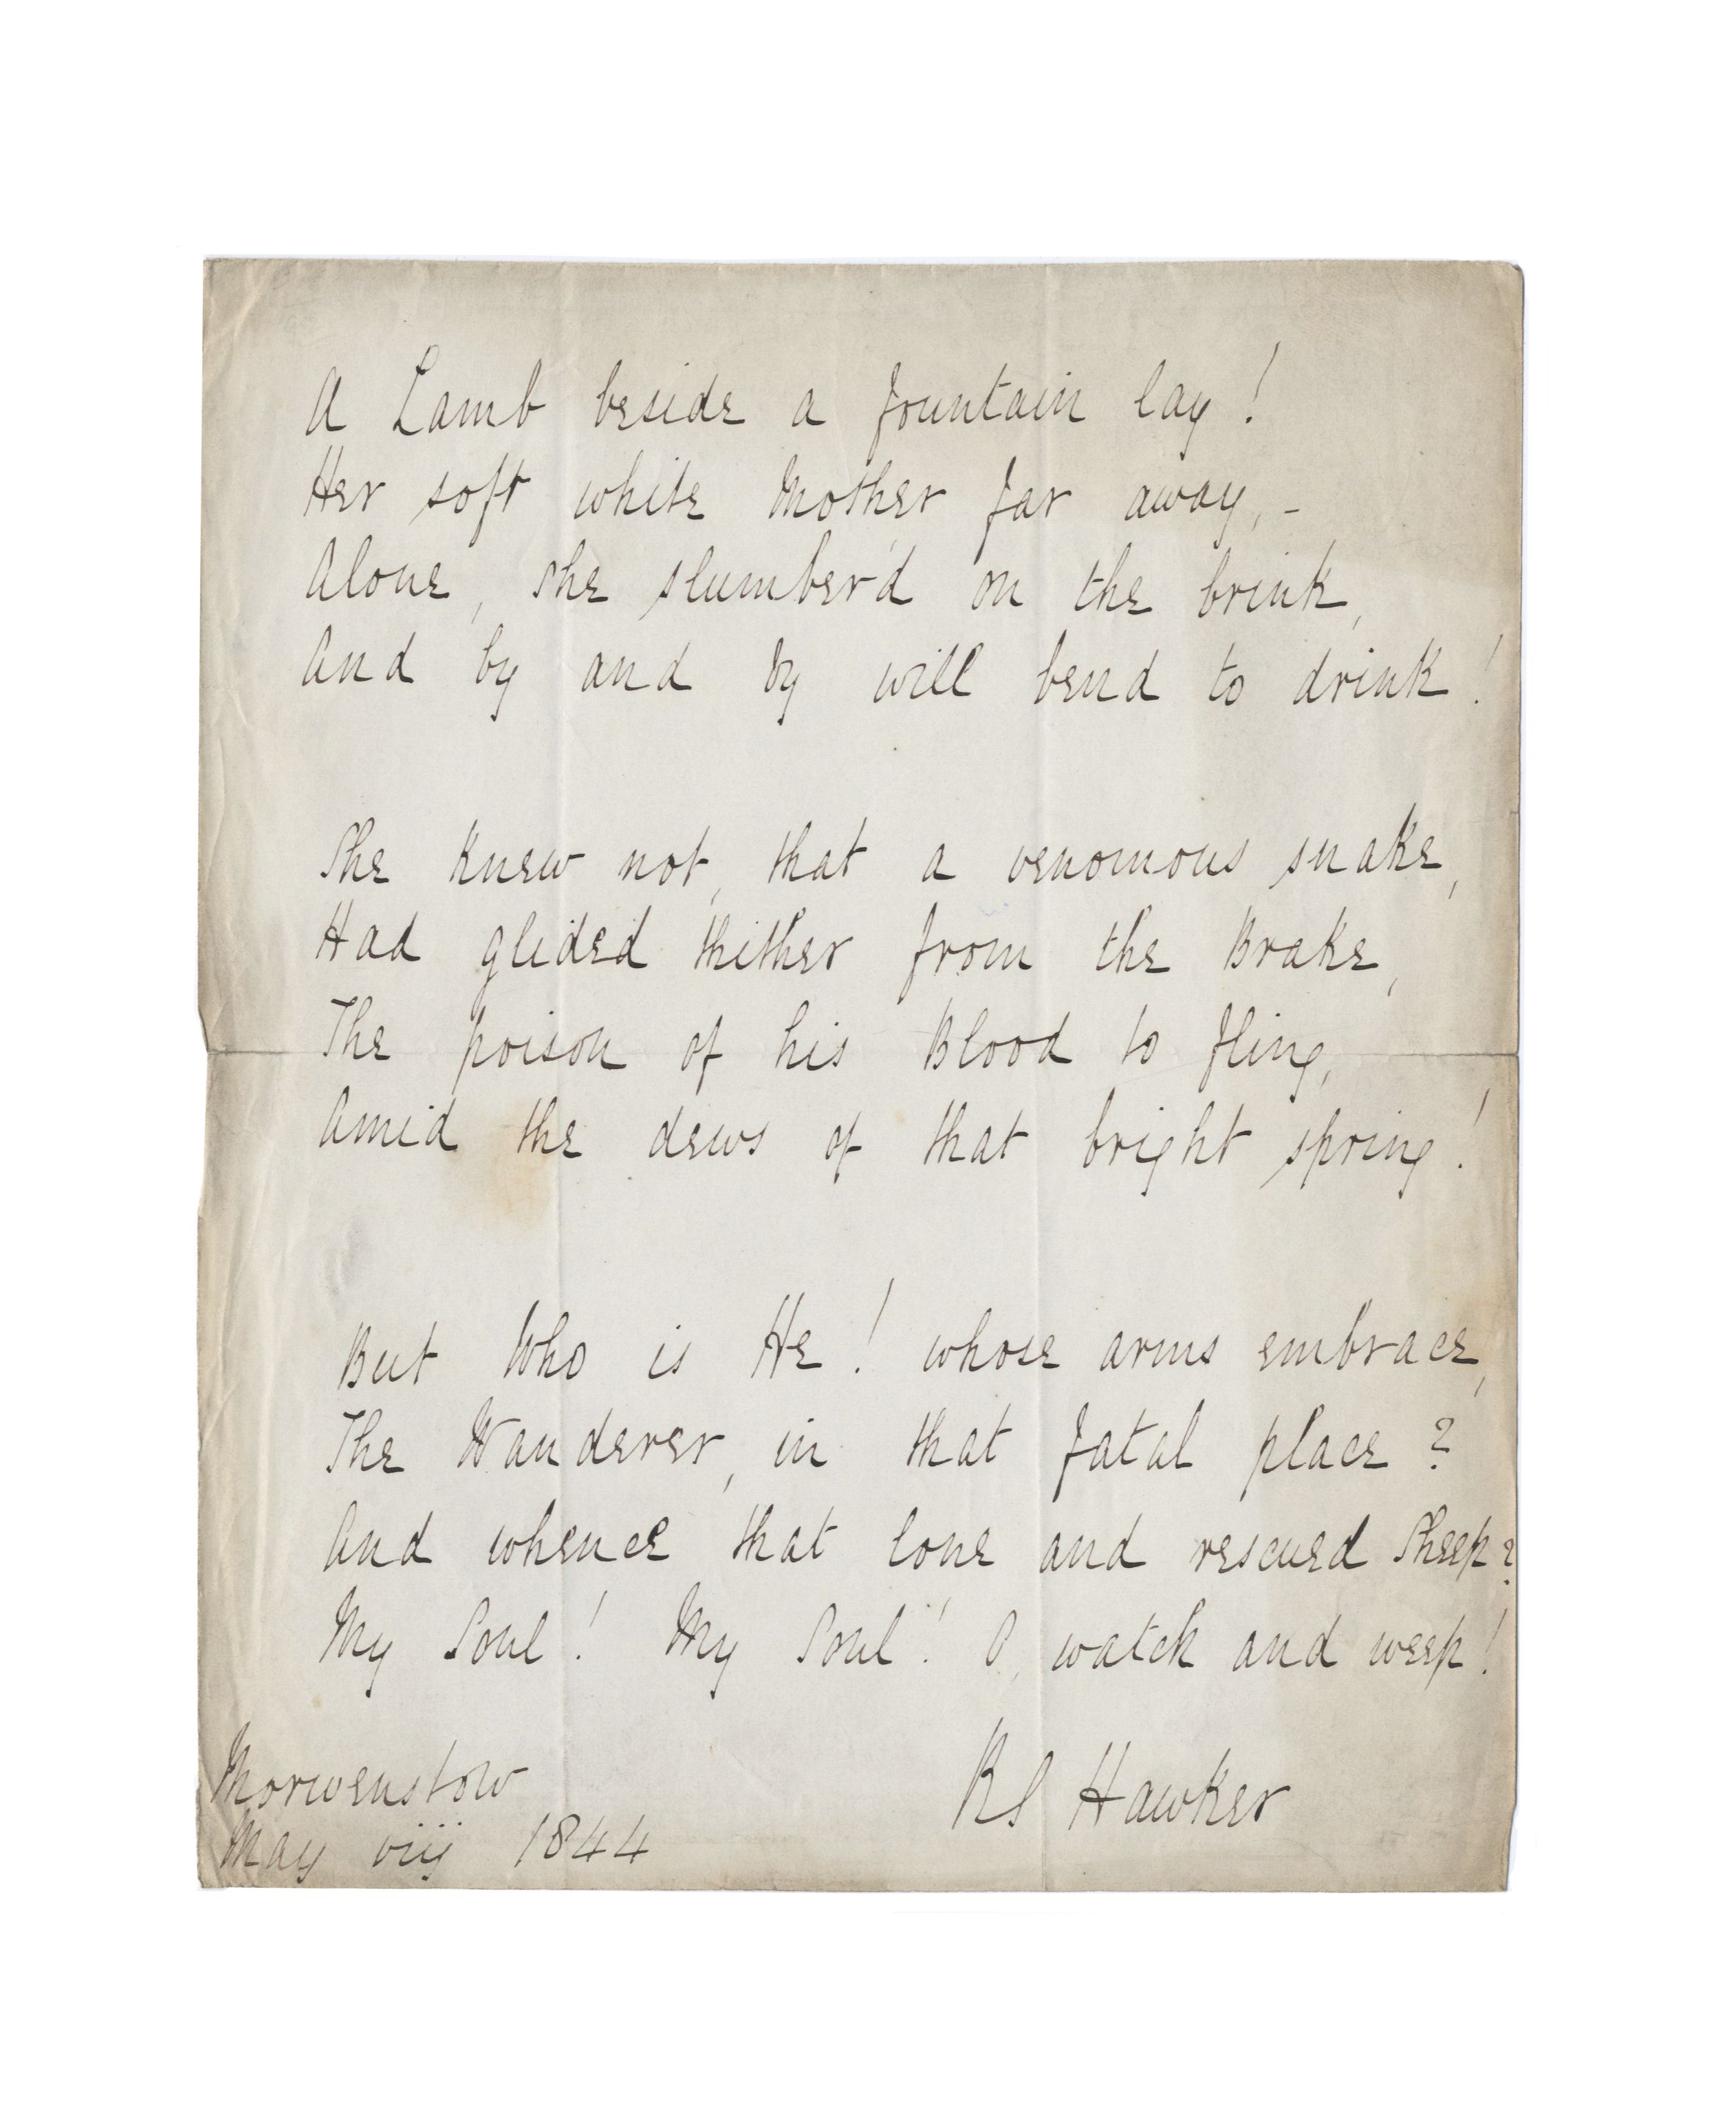 A Lamb beside a fountain lay!
Her soft white Mother far away,-
Alone, she slumber'd on the brink,
And by and by will bend to drink!
She knew not, that a venomous snake,
Had glided thither from the Brake,
The poison of his Blood to fling,
Amid the dews of that bright spring!
But Who is He! whose arms embrace,
The Wanderer, in that fatal place?
And whence that lone and rescued Sheep?
My Soul! My Soul! O, watch and weep!
RS Hawker
Morwenstow
May viij 1844